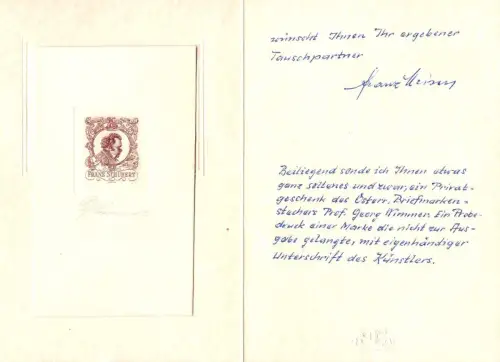 FRANZ SCHUBERT
wünscht Ihnen Ihr ergebener
Tauschpartner
Franz
Beiliegend sende ich Ihnen etwas
ganz seltenes und zwar, ein Privat-
geschenk des Österr. Briefmarken-
stechers Prof. Georg Wimmer. Ein Probe-
druck einer Marke die nicht zur Aus-
gabe gelangte, mit eigenhändiger
Unterschrift des Künstlers.